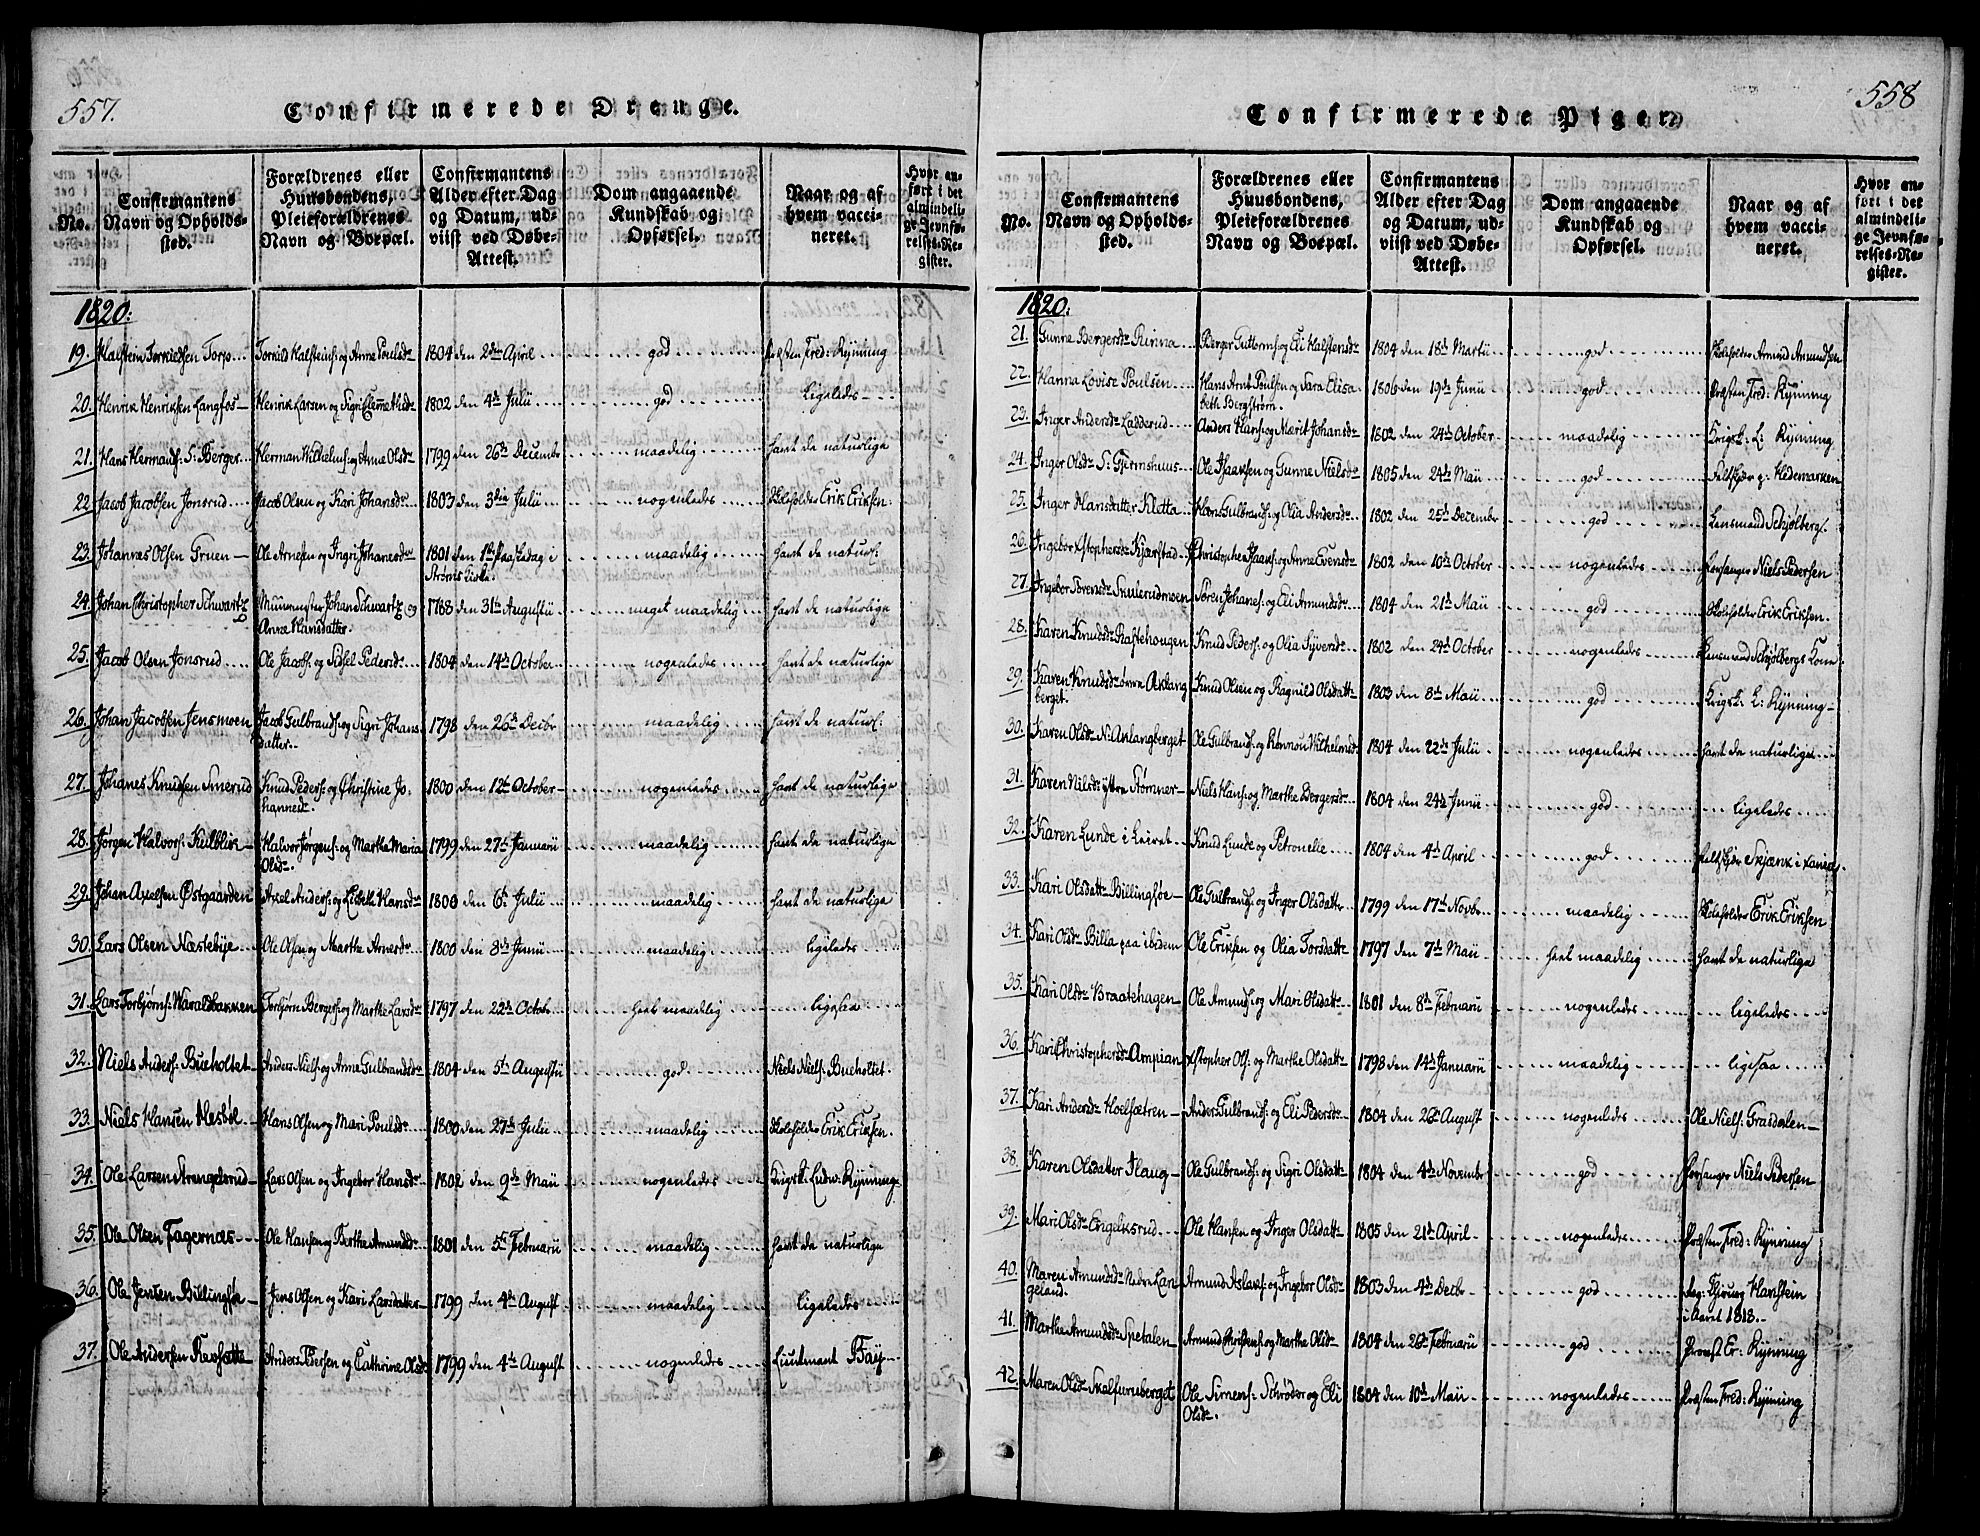 557.
Confirmerede Drenge.
No.
Confirmantens
Navn og Opholds-
sted.
Forældrenes eller
Huusbondens,
Pleieforældrenes
Navn og Boepæl.
Confirmantens
Alder efter Dag
og Datum, ud-
viist ved Døbe-
Attest.
Dom angaaende
Kundskab og
Opførsel.
Naar og af
hvem vacci-
neret.
Hvor an-
ført i det
almindeli-
ge Jevnfø-
relses-Re-
gister.
1820:
19. Halstein Torkildsen Torp Torkild Halsteins: og Anne Poulsdr 1804 den 2den April god Præsten Fred: Rynning
20. Henrik Henriksen Langfos Henrik Larsen og Sigri 1802 den 4de Julii god ligeledes
21. Hans Hermans: S: Berger Herman Wilhelms: og Anna Olsdr 1799 den 26de Decembr maadelig havt de naturlige
22 Jacob Jacobsen Jonsrud Jacob Olsen og Kari Johansdr 1803 den 3die Julii nogenledes Skoleholder Erik Eriksen
23. Johannes Olsen Gruen Ole Arnesen og Ingri Johanesdr 1801 den 1ste Paaskedag i maadelig havt de naturl:
Strøms Kirke.
24. Johan Christopher Schwartz Muurmester Johan Schwartz og 1788 den 31te Augustii meget maadelig havt de naturlige
Anne Hansdatter.
25. Jacob Olsen Jonsrud Ole Jacobs: og Sidsel Pedersdr 1804 den 14de October nogenledes havt de naturlige
26. Johan Jacobsen Jensmoen Jacob Gulbrands: og Sigri Johans 1798 den 26de Decbr maadelig havt de naturl:
datter.
27. Johanes Knudsen Smerud Knud Peders: og Christine Jo- 1800 den 12te October nogenledes havt de naturlige
hannesd.
28. Jørgen Halvors: Kulblik Halvor Jørgens: og Marthe Maria 1799 den 27de Januarii maadelig havt de naturlige
Olsdr.
29. Johan Axelsen Østgaarden Axel Anders: og Lisbeth Hansdr 1800 den 6te Julii maadelig havt de naturlige
30. Lars Olsen Næstebÿe Ole Olsen og Marthe Arnesdr 1800 den 8de Junii maadelig ligeledes
31. Lars Torbjørns: Waraldbakken Torbjørn Bergers: og Marthe Larsdr 1797 den 22de Octobr heel maadelig ligesaa
32. Niels Anders: Bueholtet Anders Niels: og Anne Gulbrandsdr 1804 den 5te Augustii god Niels Niels: Bueholtet.
33. Niels Hansen Hesbøl Hans Olsen og Mari Poulsdr 1800 den 27de Julii maadelig Skoleholder Erik Eriksen.
34. Ole Larsen Strengelsrud Lars Olsen og Ingebor Hansdr 1802 den 9de Maii nogenledes Krigsk: Ludv: Rÿnning
35. Ole Olsen Fagernæs Ole Hansen og Berthe Amundsdr 1801 den 5te Februarii maadelig havt de naturlige
36. Ole Jensen Billingsøe Jens Olsen og Kari Larsdatter 1799 den 4de August maadelig ligeledes
37. Ole Andersen Anders Pedersen og Cathrine Olsdr 1799 den 4de August nogenledes Lieutnant Faÿ
558
Confirmerede Piger.
No.
Confirmantens
Navn og Opholds-
sted.
Forældrenes eller
Huusbondens,
Pleieforældrenes
Navn og Boepæl.
Confirmantens
Alder efter Dag
og Datum, ud-
viist ved Døbe-
Attest.
Dom angaaende
Kundskab og
Opførsel.
Naar og af
hvem vacci-
neret.
Hvor an-
ført i det
almindeli-
ge Jevnfø-
relses-Re-
gister.
1820.
21. Gunne Bergersdr Rinna Berger Guttorms: og Eli Halstensdr 1804 den 18de Martii god Skoleholder Amund Amundsen
22. Hanna Lovise Poulsen Hans Arnt Poulsen og Sara Elisa- 1806 den 19de Junii god Præsten Fred: Rÿnning
beth Bergstrøm.
23. Inger Andersdr Ladderud Anders Hans: og Marit Johansdr 1802 den 24de October maadelig Krigsk: L: Rÿnning
24. Inger Olsdr S: Gjermshuus Ole Isaaksen og Gunne Nielsdr 1805 den 24de Maii god Hedemarken
25. Inger Hansdatter Kletta Hans Gulbrands: og Olia Andersdr 1802 den 25de Decembr god Lensmand Schjølberg.
26. Ingebor Xstophersdr Kjærstad Christopher Isaaks: og Anne Evensdr 1802 den 10de October nogenledes Forsanger Niels Pedersen
27. Ingebor Sørensdr Skulerudmoen Søren Johanes: og Eli Amundsdr 1804 den 21de Maii god Skoleholder Erik Eriksen.
28. Karen Knudsdr Raftehougen Knud Peders: og Olia Syversdr 1802 den 24de October nogenledes Lensmand Schjølbergs Kone
29. Karen Knudsdr øvre Aklang Knud Olsen og Ragnild Olsdattr 1803 den 8de Maii god Krigsk: L: Rÿnning
berget.
30. Karen Olsdr N: Aklangberget Ole Gulbrands: og Rønnou Wilhelmsd 1804 den 22de Julii nogenledes havt de naturlige
31. Karen Nilsdr ÿttre Strømner Niels Hans: og Marthe Bergersdr 1804 den 24de Junii god ligeledes
32. Karen Lunde i Leiret Knud Lunde og Petronelle 1804 den 4de April god Skjænk i
33. Kari Olsdattr Billingsøe Ole Gulbrands: og Inger Olsdattr 1799 den 17de Novbr maadelig Skoleholder Erik Eriksen
34. Kari Olsdr Billa paa ibidem Ole Eriksen og Olia Torsdattr 1797 den 7de Maii heel maadelig havt de naturlige
35. Kari Olsdr Braatehagen Ole Amunds: og Mari Olsdattr 1801 den 8de Februarii nogenledes ligeledes
36. Kari Christophersdr Ampian Xstopher Ols: og Marthe Olsdattr 1798 den 14de Januarii maadelig ligesaa
37. Kari Andersdr Hoelsætren Anders Gulbrands: og Eli Pedersdr 1804 den 26de August nogenledes Ole Niels: Grasdalen
38. Karen Olsdatter Haug Ole Gulbrands: og Sigri Olsdattr 1804 den 4de Novembr god Forsanger Niels Pedersen
39. Mari Olsdr Engelksrud Ole Hansen og Inger Olsdattr 1805 den 21de April nogenledes Præsten Fred: Rÿnning
40. Maren Amundsdr Nedre Lan- Amund Aslaks: og Ingebor Olsdr 1803 den 4de Decbr god Harstein
geland. i Aaret 1818.
41. Marthe Amundsdr Spetalen Amund Christens: og Marthe Olsdr 1804 den 26de Februarii god Provst Er: Rÿnning
42. Maren Olsdr Skalfurnberget Ole Simens: Schrøder og Eli 1804 den 10de Maii nogenledes Præsten Fred: Rÿnning
Olsdr.